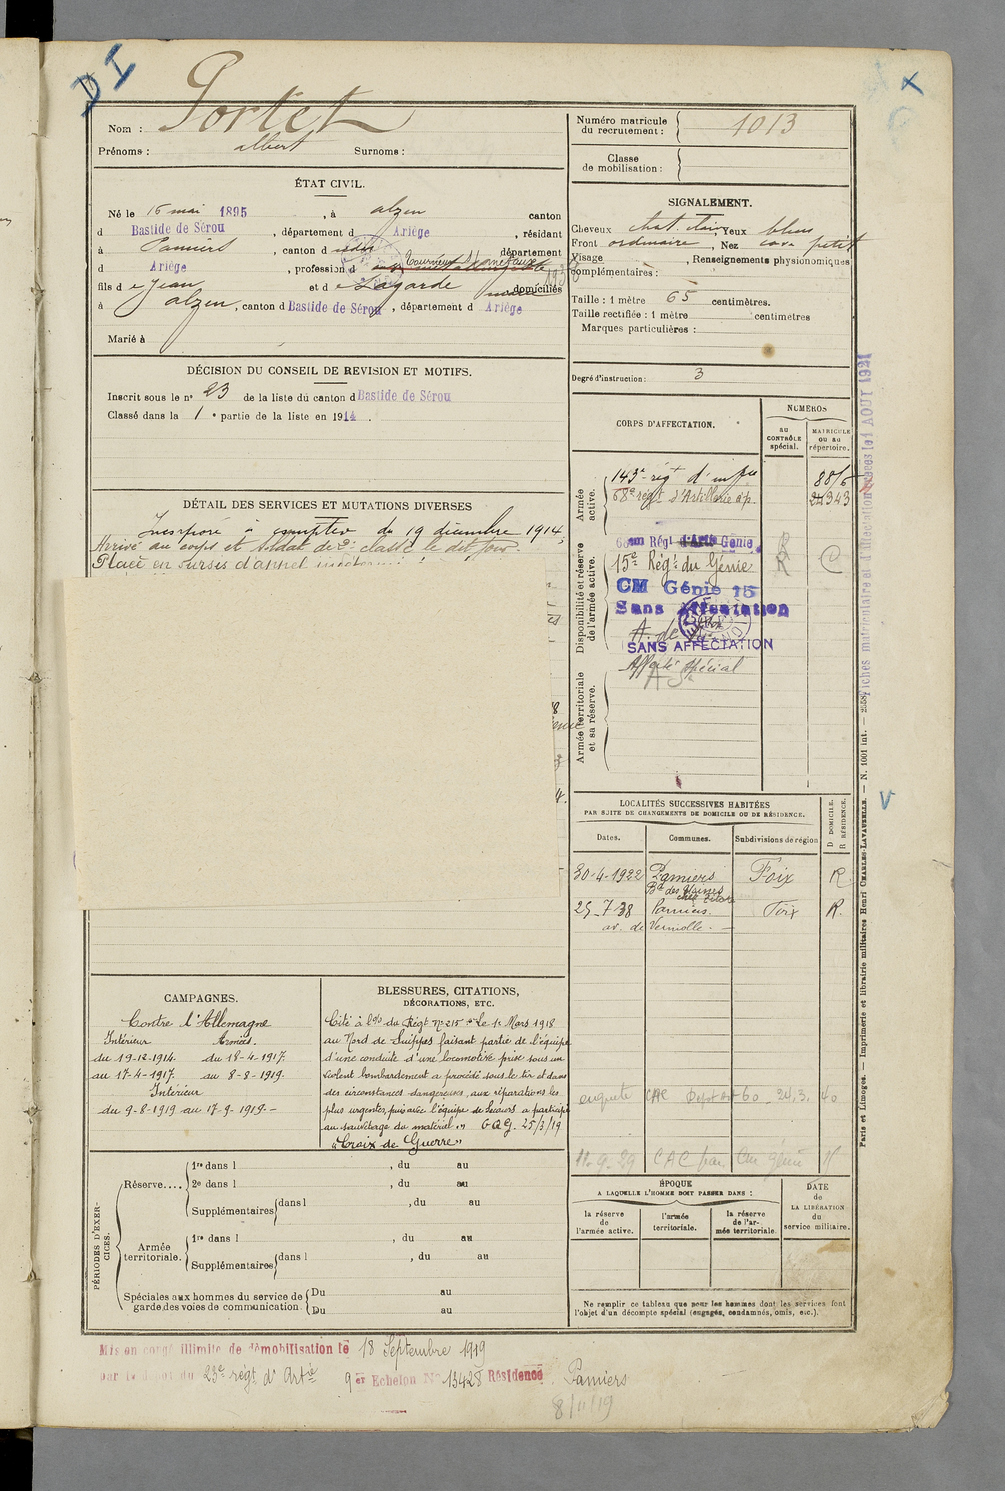 DI
Nom : Portet
Prénoms : albert Surnoms :
ÉTAT CIVIL.
Né le 16 mai 1895, à alzen canton
d Bastide de Sérou, département d Ariège, résidant
à Pamiers, canton d dudit département
d Ariège, profession d
fils d e Jean et d e Lagarde domiciliés
à alzen, canton d Bastide de Sérou, département d Ariège
Marié à
DÉCISION DU CONSEIL DE REVISION ET MOTIFS.
Inscrit sous le n° 23 de la liste du canton d Bastide de Sérou
Classé dans la 1e partie de la liste en 1914.
DÉTAIL DES SERVICES ET MUTATIONS DIVERSES
Incorporé à compter du 19 décembre 1914,
Arrivé au corps et soldat de 2e classe le dit jour.
Placé en sursis d'appel
CAMPAGNES.
Contre l'Allemagne
Intérieur Armées.
du 19-12-1914. du 18-4-1917.
au 17-4-1917. au 8-8-1919.
Intérieur
du 9-8-1919 au 17-9-1919.-
BLESSURES, CITATIONS,
DÉCORATIONS, ETC.
Cité à l'o/o du Régt N° 215 Le 1er Mars 1918
au Nord de Suippes faisant partie de l'équipe
d'une conduite d'une locomotive prise sous un
violent bombardement a procédé sous le tir et dans
des circonstances dangereuses, aux réparations les
plus urgentes, puis avec l'équipe de secours a participé
au sauvetage du matériel." GQG. 25/3/19
"Croix de Guerre"
PÉRIODES D'EXERCICES.
Réserve.... 1re dans l , du au
2e dans l , du au
Supplémentaires dans l , du au
Armée territoriale. 1re dans l , du au
Supplémentaires dans l , du au
Spéciales aux hommes du service de garde des voies de communication Du au
Du au
Mis en congé illimité de démobilisation le 18 Septembre 1919
par le dépôt du 23e régt d'Artie 9er Echelon N° 13428 Résidence Pamiers
8/11/19
Numéro matricule du recrutement : 1013
Classe de mobilisation :
SIGNALEMENT.
Cheveux chat. clair, Yeux bleus
Front ordinaire, Nez cave petit
Visage , Renseignements physionomiques
complémentaires :
Taille : 1 mètre 65 centimètres.
Taille rectifiée : 1 mètre centimètres
Marques particulières :
Degré d'instruction : 3
CORPS D'AFFECTATION.
NUMÉROS
au CONTRÔLE spécial.
MATRICULE ou au répertoire.
Armée active.
143e rég d'infie
68e régt d'Artillerie à p. 24343
Disponibilité et réserve de l'armée active.
Régt Génie
15e Régt du Génie
CM Génie 15
Sans Affectation
SANS AFFECTATION
Affecté spécial
Armée territoriale et sa réserve.
LOCALITÉS SUCCESSIVES HABITÉES
PAR SUITE DE CHANGEMENTS DE DOMICILE OU DE RÉSIDENCE.
Dates. Communes. Subdivisions de région D DOMICILE. R RÉSIDENCE.
30-4-1922 Pamiers Foix R
Bd des Usines
25-7-38 Pamiers. Foix R.
av. de Verniolle.
enquete CAC 24.3.40
11-9-29 CAC
ÉPOQUE
A LAQUELLE L'HOMME DOIT PASSER DANS :
la réserve de l'armée active.
l'armée territoriale.
la réserve de l'armée territoriale.
DATE de LA LIBÉRATION du service militaire.
Ne remplir ce tableau que pour les hommes dont les services font
l'objet d'un décompte spécial (engagés, condamnés, omis, etc.).
Paris et Limoges. — Imprimerie et librairie militaires Henri CHARLES-LAVAUZELLE. — N. 1001 int.